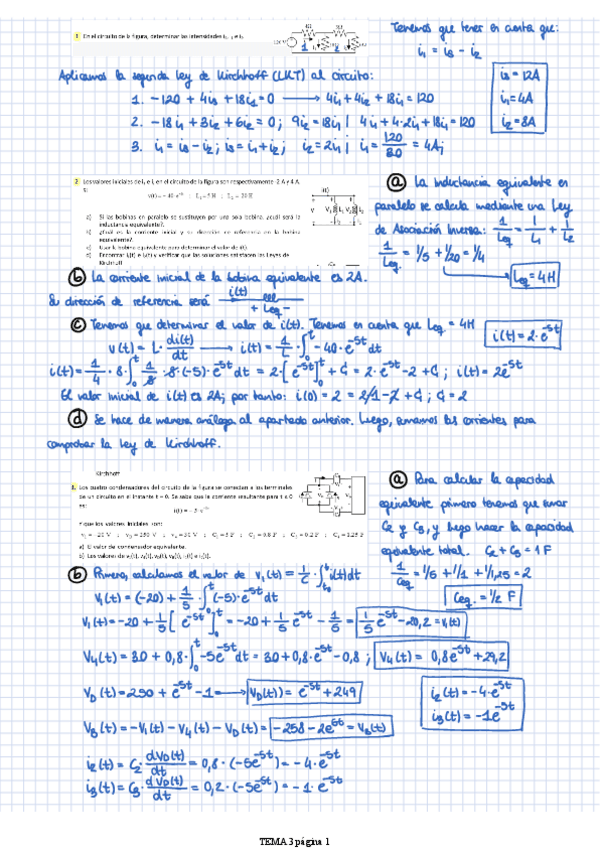 1 En el circuito de la figura, determinar las intensidades i₁, i₂ e i₃
Tenemos que tener en cuenta que:
i₁ = i₃ - i₂
Aplicamos la segunda ley de Kirchhoff (LKT) al circuito:
1. -120 + 4i₃ + 18i₁ = 0 → 4i₁ + 4i₂ + 18i₁ = 120
2. -18i₁ + 3i₂ + 6i₂ = 0; 9i₂ = 18i₁ | 4i₁ + 4·2i₁ + 18i₁ = 120
3. i₁ = i₃ - i₂; i₃ = i₁ + i₂; i₂ = 2i₁ | i₁ = 120/30 = 4A;
i₃ = 12A
i₁ = 4A
i₂ = 8A
2 Los valores iniciales de i₁ e i₂ en el circuito de la figura son respectivamente -2 A y 4 A.
Si
a) Si las bobinas en paralelo se sustituyen por una sola bobina, ¿cuál será la
inductancia equivalente?
b) ¿Cuál es la corriente inicial y su dirección de referencia en la bobina
equivalente?
c) Usar la bobina equivalente para determinar el valor de i(t)
d) Encontrar i₁(t) e i₂(t) y verificar que las soluciones satisfacen las Leyes de
Kirchhoff
a La inductancia equivalente en
paralelo se calcula mediante una Ley
de Asociación Inversa: 1/Leq = 1/L₁ + 1/L₂
1/Leq = 1/5 + 1/20 = 1/4
Leq = 4H
b La corriente inicial de la bobina equivalente es 2A.
Su dirección de referencia será i(t)
+ Leq -
c Tenemos que determinar el valor de i(t). Tenemos en cuenta que Leq = 4H
i(t) = 2·e^-5t
v(t) = L· di(t)/dt → i(t) = 1/L · ∫₀ᵗ -40·e^-5t dt
El valor inicial de i(t) es 2A; por tanto: i(0) = 2 = 2/1 - 2 + C; C = 2
d Se hace de manera análoga al apartado anterior. Luego, sumamos las corrientes para
comprobar la ley de Kirchhoff.
Kirchhoff
3. Los cuatro condensadores del circuito de la figura se conectan a los terminales
de un circuito en el instante t = 0. Se sabe que la corriente resultante para t ≥ 0
es:
Y que los valores iniciales son:
a) El valor de condensador equivalente.
a Para calcular la capacidad
equivalente primero tenemos que sumar
C₂ y C₃, y luego hacer la capacidad
equivalente total. C₂ + C₃ = 1F
1/Ceq = 1/5 + 1/1 + 1/1,25 = 2
Ceq. = 1/2 F
b Primero, calculamos el valor de v₁(t) = 1/C · ∫ i(t)dt
V₁(t) = (-20) + 1/5 ∫₀ᵗ (-5)·e^-5t dt
V₁(t) = -20 + 1/5 [e^-5t]₀ᵗ = -20 + 1/5 e^-5t - 1/5 = 1/5 e^-5t - 20,2 = v₁(t)
V₄(t) = 30 + 0,8·∫₀ᵗ -5e^-5t dt = 30 + 0,8·e^-5t - 0,8; V₄(t) = 0,8e^-5t + 29,2
V_D(t) = 250 + e^-5t - 1 → V_D(t)) = e^-5t + 249
i₂(t) = -4·e^-5t
i₃(t) = -1e^-5t
i₂(t) = C₂· dV_D(t)/dt = 0,8·(-5e^-5t) = -4·e^-5t
i₃(t) = C₃· dV_D(t)/dt = 0,2·(-5e^-5t) = -1·e^-5t
TEMA 3 página 1